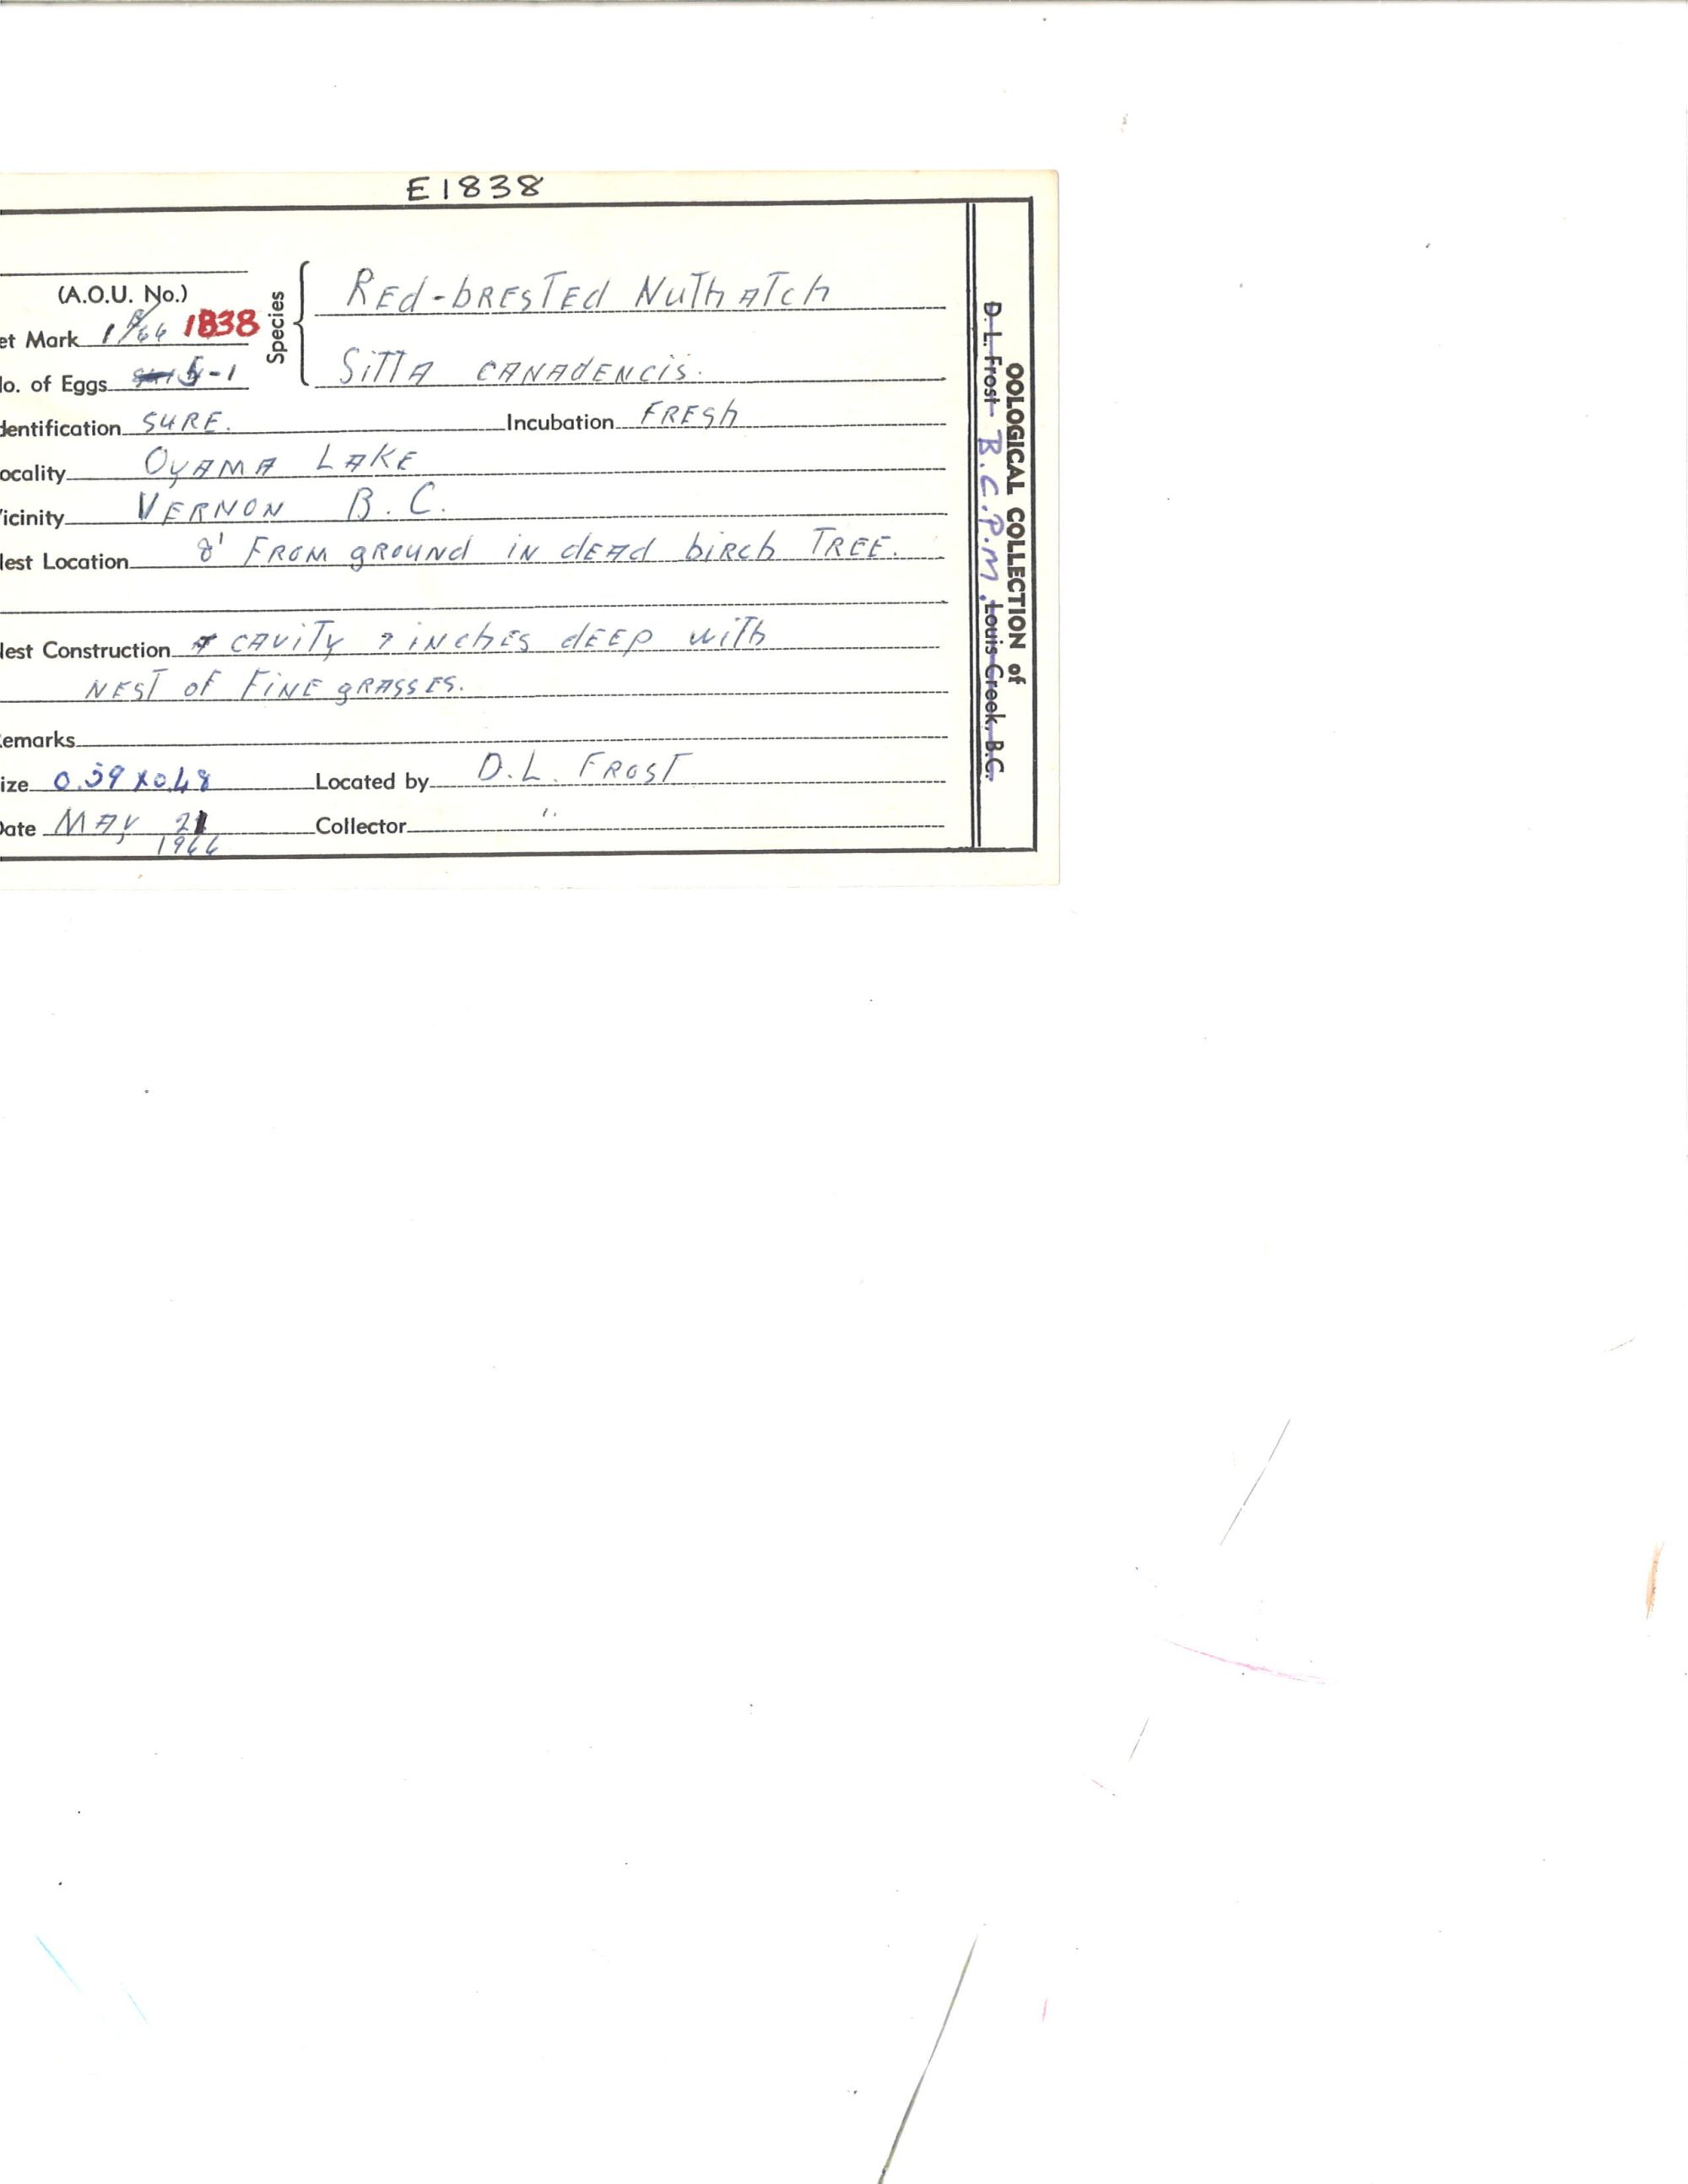 E1838
(A.O.U. No.)
et Mark 1838
Species
REd-bRESTEd NuThATch
SiTTA CANAdENCiS.
o. of Eggs 5-1
dentification SURE. Incubation FRESh
ocality OyAMA LAKE
icinity VERNON B.C.
lest Location 8' FROM gROUNd iN dEAd biRch TREE.
lest Construction CAViTy 7 iNchES dEEP wiTh
NEST OF FiNE gRASSES.
emarks
ize 0.59 x 0.48 Located by D.L. FROST
Date MAY 21 Collector ''
1966
OOLOGICAL COLLECTION of
D. L. Frost B.C.P.M. Louis Creek, B.C.